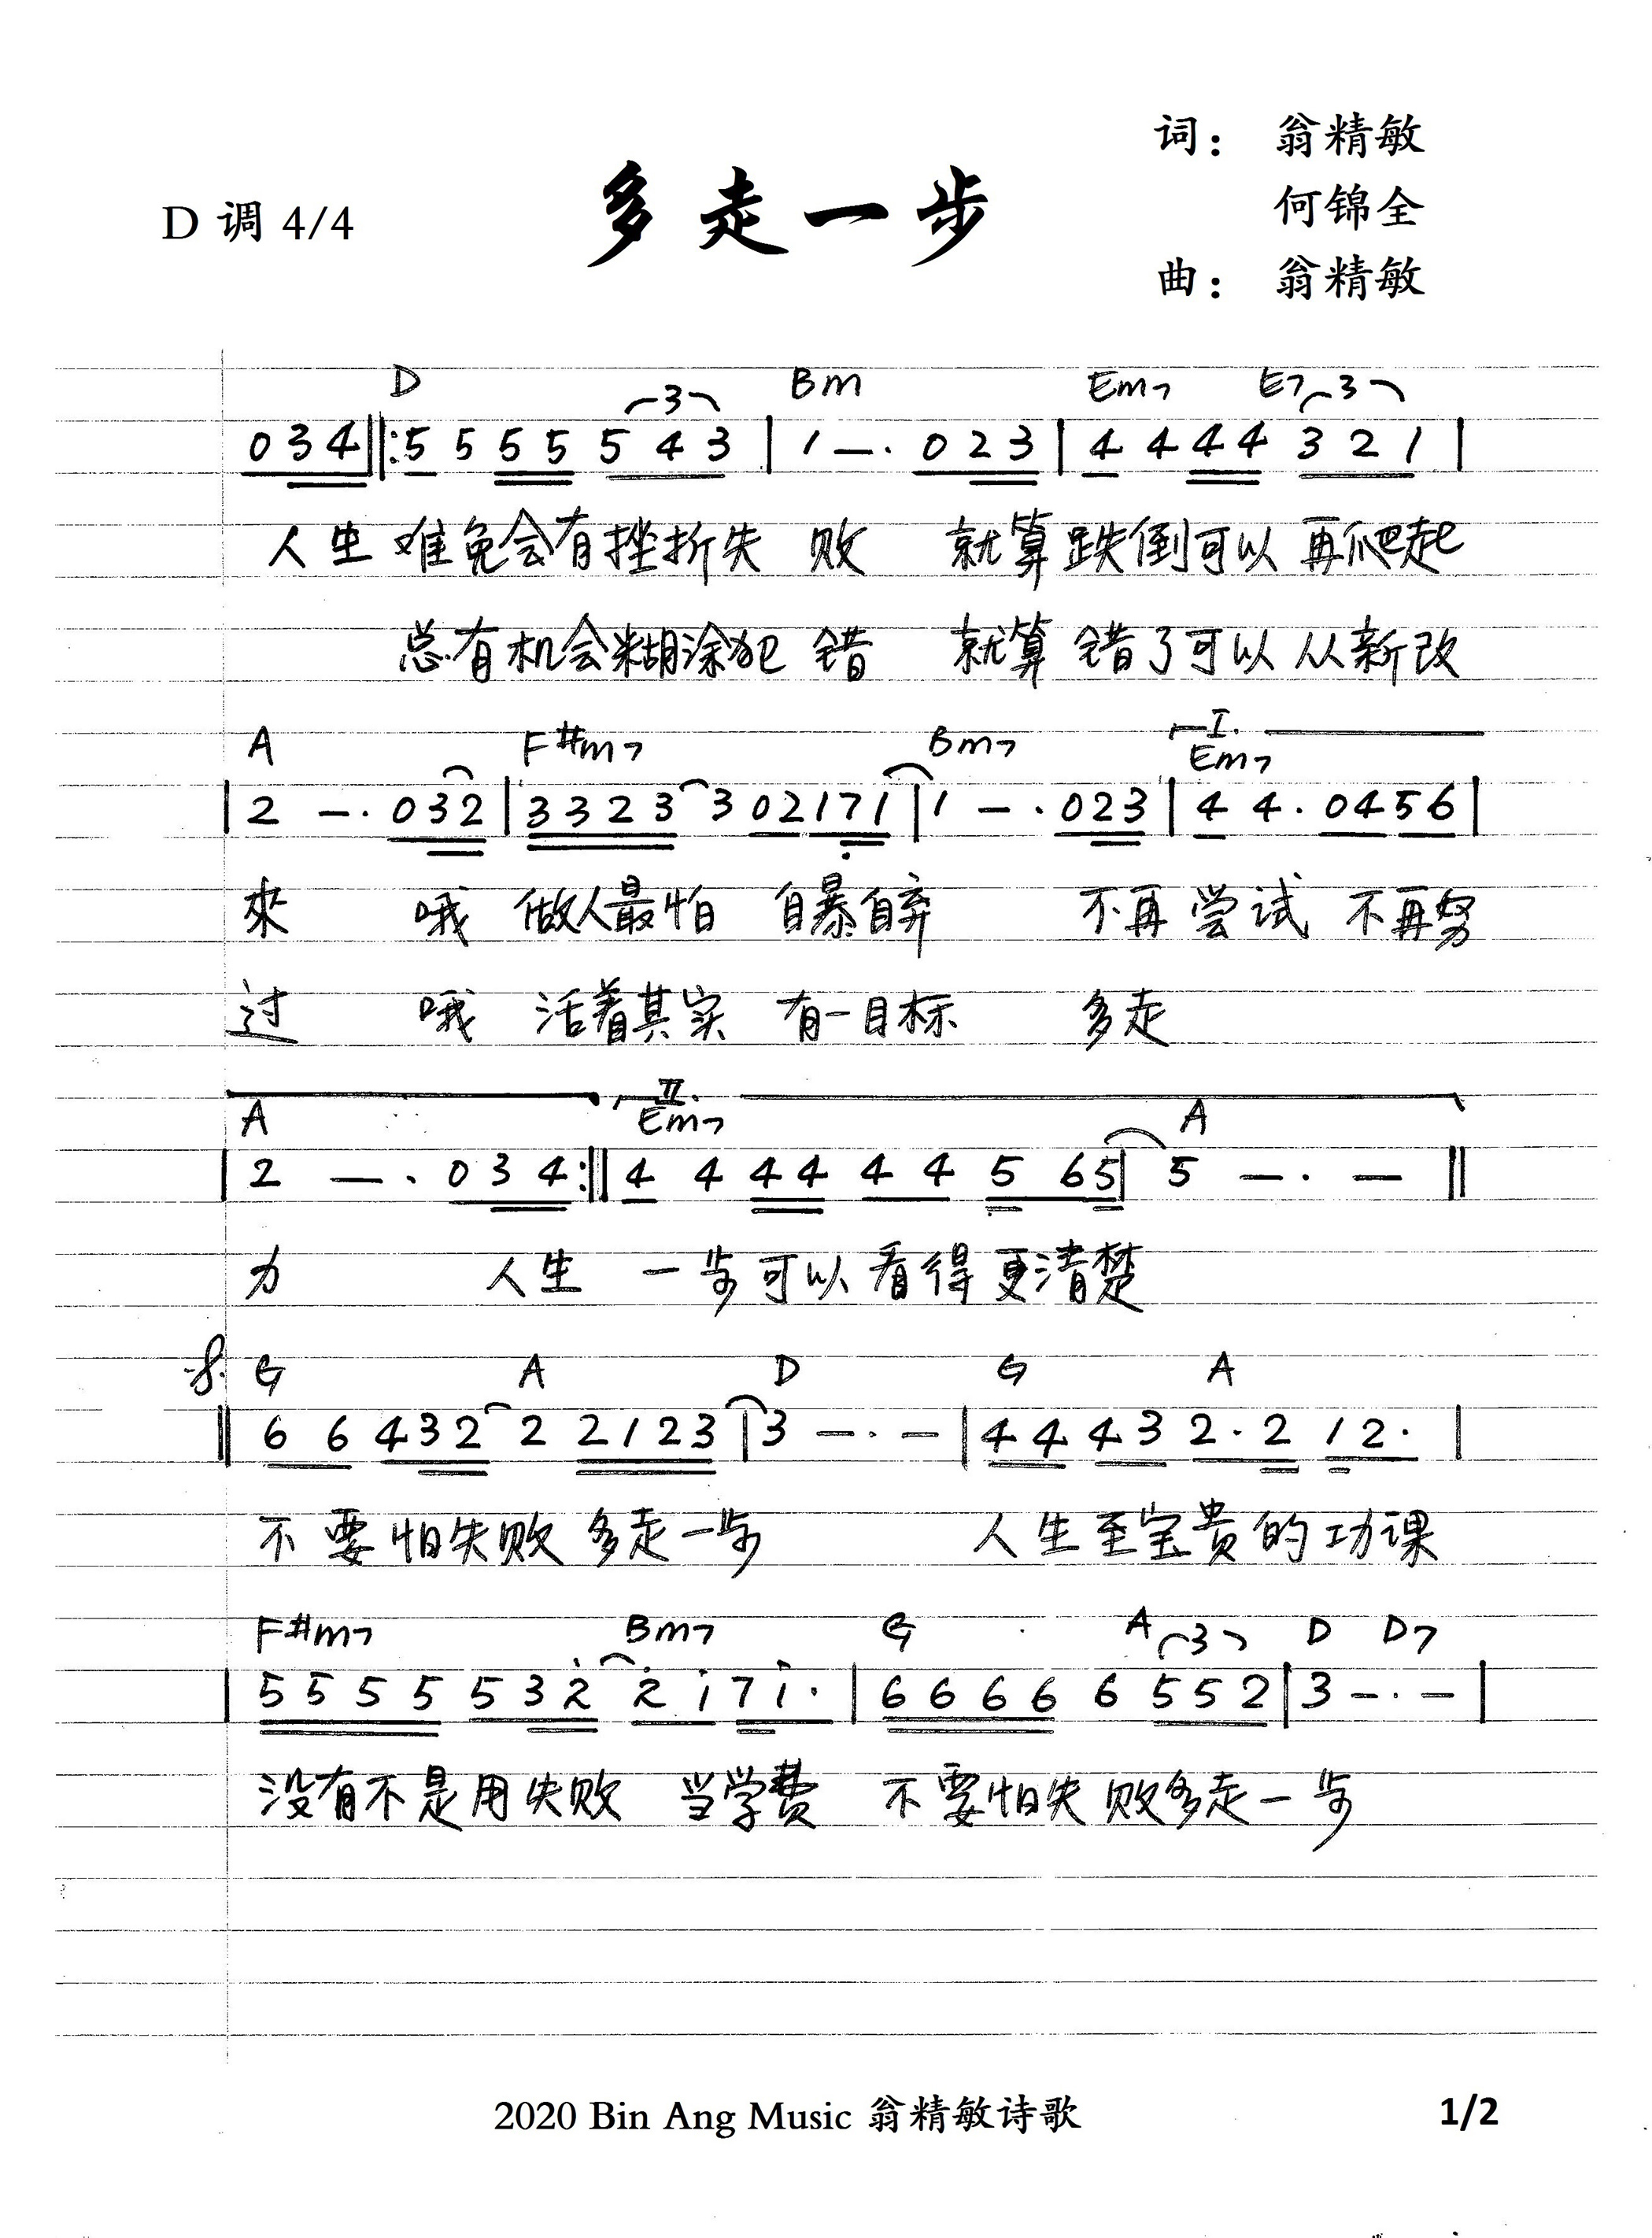 词： 翁精敏
D 调 4/4 多走一步 何锦全
曲： 翁精敏
D Bm Em7 E7 3
0 3 4 ‖: 5 5 5 5 5 4 3 | 1 — · 0 2 3 | 4 4 4 4 3 2 1 |
人生 难免会有挫折失 败 就算跌倒可以 再爬起
总有机会糊涂犯 错 就算 错了可以 从新改
A F#m7 Bm7 I. Em7
| 2 — · 0 3 2 | 3 3 2 3 3 0 2 1 7 1 | 1 — · 0 2 3 | 4 4 · 0 4 5 6 |
來 哦 做人最怕 自暴自弃 不再 尝试 不再努
过 哦 活着其实 有一目标 多走
A II. Em7 A
| 2 — · 0 3 4 :‖ 4 4 4 4 4 4 5 6 5 | 5 — · — ‖
力 人生 一步可以看得更清楚
G A D G A
‖ 6 6 4 3 2 2 2 1 2 3 | 3 — · — | 4 4 4 3 2 · 2 1 2 · |
不要怕失败 多走一步 人生至宝贵的功课
F#m7 Bm7 G A 3 D D7
| 5 5 5 5 5 3 2 2 1 7 1 · | 6 6 6 6 6 5 5 2 | 3 — · — |
没有不是用失败 当学费 不要怕失 败多走一步
2020 Bin Ang Music 翁精敏诗歌 1/2